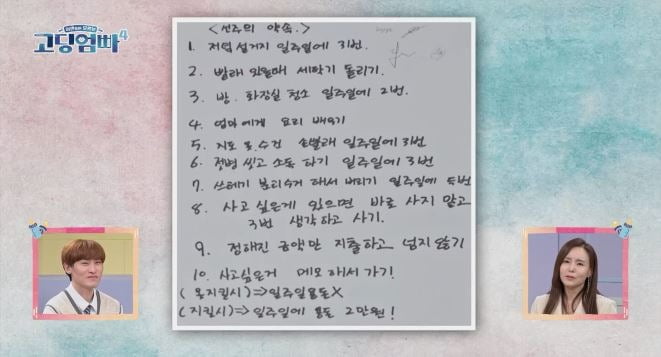 고딩엄빠4
<선주의 약속.>
1. 저녁 설거지 일주일에 3번.
2. 빨래 있을때 세탁기 돌리기.
3. 방. 화장실 청소 일주일에 2번.
4. 엄마에게 요리 배우기
5. 손빨래 일주일에 3번
6. 젖병 씻고 소독 하기 일주일에 3번
7. 쓰레기 분리수거 해서 버리기 일주일에 번
8. 사고 싶은게 있으면 바로 사지 말고
3번 생각하고 사기.
9. 정해진 금액만 지출하고 넘지 않기
10. 사고싶은거 메모 해서 가기!
(못지킬시) => 일주일용돈X
(지킬시) => 일주일에 용돈 2만원!